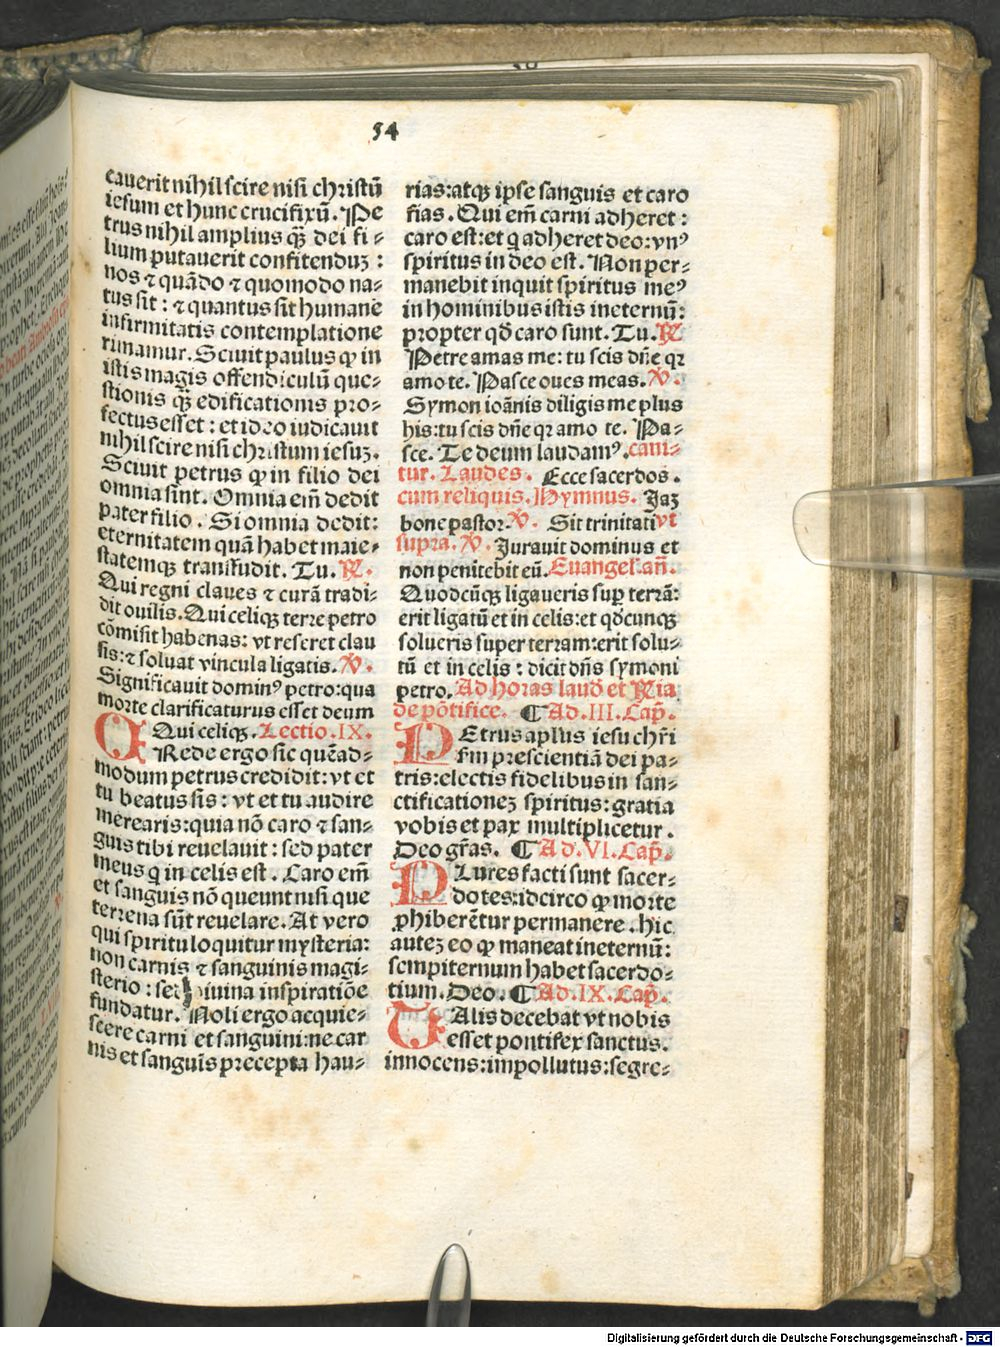 54
cauerit nihil scire nisi christū
iesum et hunc crucifixū. Pe
trus nihil amplius qꝫ dei fi⸗
lium putauerit confitenduꝫ :
nos ⁊ quādo ⁊ quomodo na⸗
tus sit : ⁊ quantus sit humane
infirmitatis contemplatione
rimamur. Sciuit paulus ꝙ in
istis magis offendiculū que⸗
stionis qꝫ edificationis pro⸗
fectus esset : et ideo iudicauit
nihil scire nisi christum iesuꝫ.
Sciuit petrus ꝙ in filio dei
omnia sint. Omnia em̄ dedit
pater filio. Si omnia dedit:
eternitatem quā habet maie⸗
statemqꝫ transfudit. Tu. ℟.
Qui regni claues ⁊ curā tradi⸗
dit ouilis. Qui celiqꝫ terre petro
cōmisit habenas: vt reseret clau
sis: ⁊ soluat vincula ligatis. ℣.
Significauit dominꝰ petro: qua
morte clarificaturus esset deum
Qui celiqꝫ. Lectio .IX.
CRede ergo sic quēad⸗
modum petrus credidit: vt et
tu beatus sis : vt et tu audire
merearis: quia nō caro ⁊ san⸗
guis tibi reuelauit : sed pater
meus q in celis est. Caro em̄
et sanguis nō queunt nisi que
terrena sūt reuelare. At vero
qui spiritu loquitur mysteria:
non carnis ⁊ sanguinis magi⸗
sterio : sed diuina inspiratiōe
fundatur. Noli ergo acquie⸗
scere carni et sanguini: ne car
nis et sanguis precepta hau⸗
rias: atqꝫ ipse sanguis et caro
fias. Qui em̄ carni adheret :
caro est: et q adheret deo: vnꝰ
spiritus in deo est. Non per⸗
manebit inquit spiritus meꝰ
in hominibus istis ineternū:
propter qd̄ caro sunt. Tu. ℟
Petre amas me: tu scis dn̄e qr
amo te. Pasce oues meas. ℣.
Symon ioānis diligis me plus
his: tu scis dn̄e qr amo te. Pa⸗
sce. Te deum laudamꝰ. cani⸗
tur. Laudes. Ecce sacerdos.
cum reliquis. Hymnus. Jaꝫ
bone pastor. ℣. Sit trinitati vt
supra. ℣. Jurauit dominus et
non penitebit eū. Euangel. an̄.
Quodcūqꝫ ligaueris sup terrā:
erit ligatū et in celis: et qd̄cunqꝫ
solueris super terram: erit solu⸗
tū et in celis : dicit dn̄s symoni
petro. Ad horas laud̄ et ℟ia
de pōtifice. ¶ Ad .III. Cap̄.
PEtrus aplus iesu chr̄i
sm prescientiā dei pa⸗
tris: electis fidelibus in san⸗
ctificationeꝫ spiritus: gratia
vobis et pax multiplicetur.
Deo gr̄as. ¶ Ad .VI. Cap̄.
PLures facti sunt sacer⸗
dotes: idcirco ꝙ morte
ꝓhiberētur permanere. hic
auteꝫ eo ꝙ maneat ineternū:
sempiternum habet sacerdo⸗
tium. Deo. ¶ Ad .IX. Cap̄.
TAlis decebat vt nobis
esset pontifex sanctus.
innocens: impollutus: segre⸗
Digitalisierung gefördert durch die Deutsche Forschungsgemeinschaft - DFG